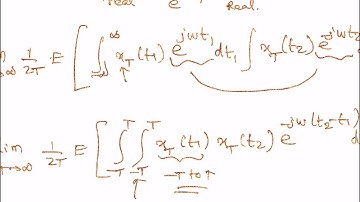 real e real.
m 1/2T E [ ∫_{-∞}^{∞} x_T(t1) e^{jwt1} dt1 ∫ x_T(t2) e^{-jwt2}
lim T→∞ 1/2T E [ ∫_{-T}^{T} ∫_{-T}^{T} x_T(t1) x_T(t2) e^{-jw(t2-t1)} d
-T to T